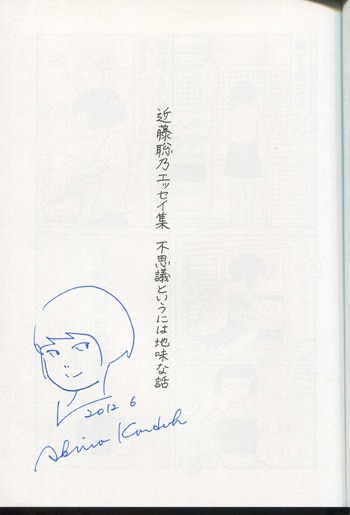 近藤聡乃エッセイ集　不思議というには地味な話
2012 6
Akino Kondoh